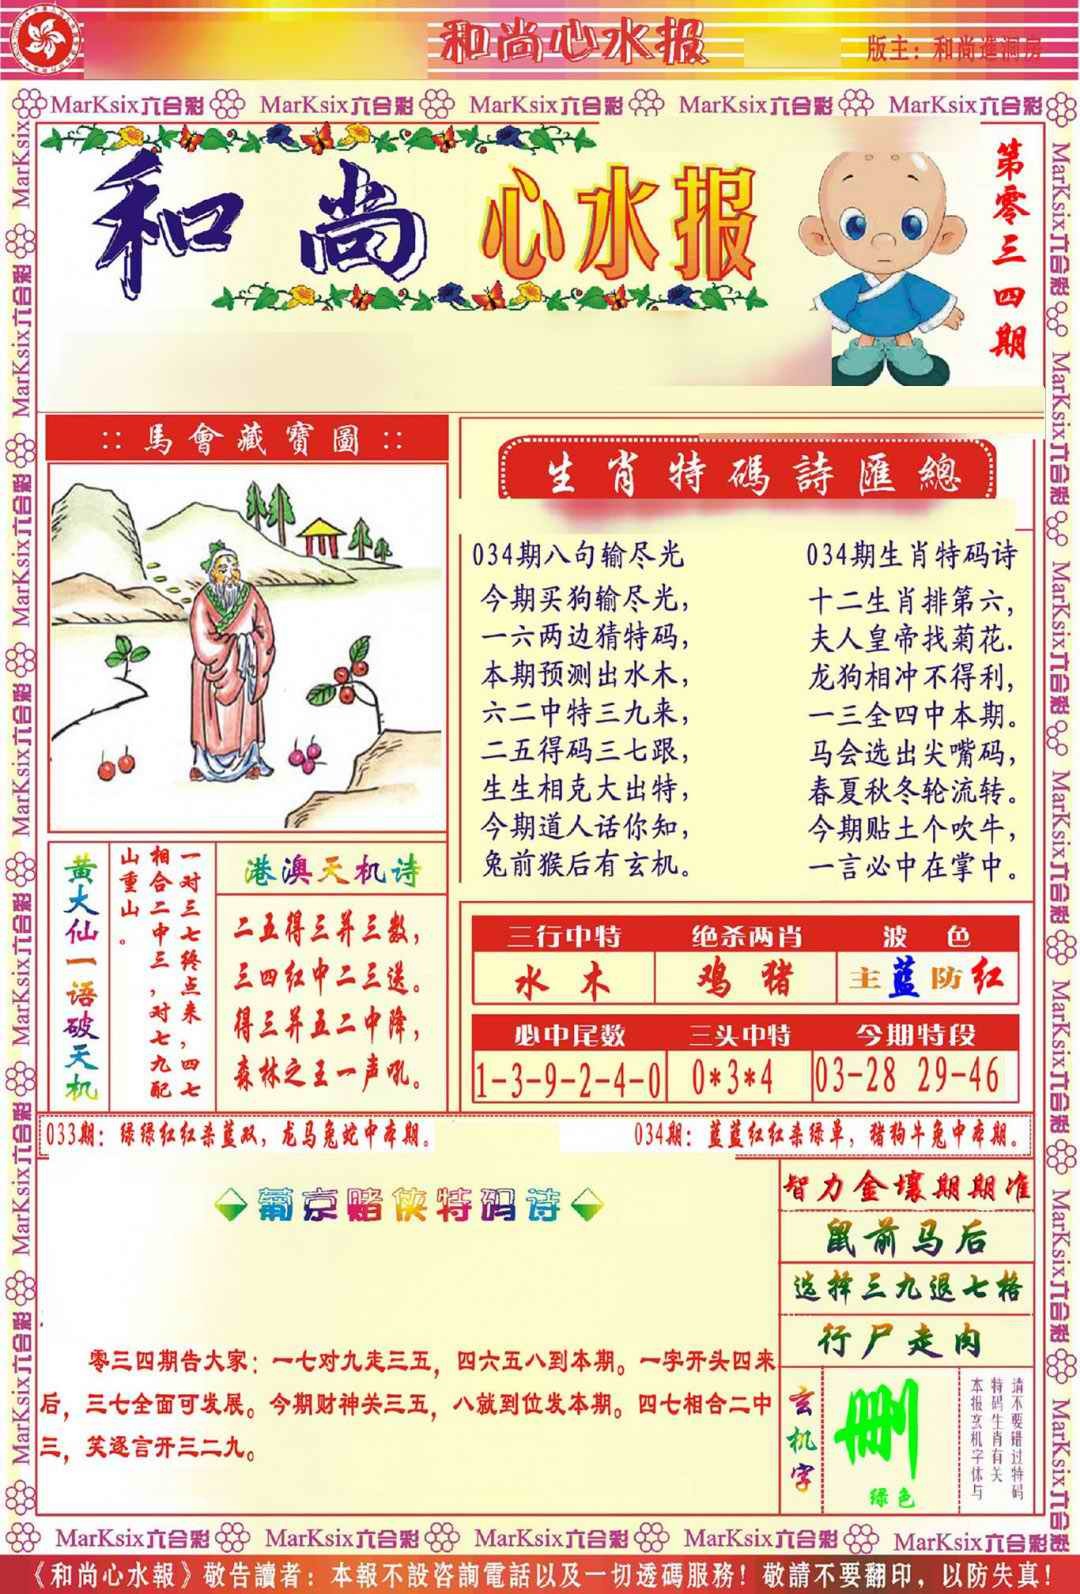 和尚心水报
版主：和尚進洞房
MarKsix六合彩 MarKsix六合彩 MarKsix六合彩 MarKsix六合彩 MarKsix六合彩
和尚心水报
第零三四期
::馬會藏寶圖::
生肖特碼詩匯總
034期八句输尽光
今期买狗输尽光，
一六两边猜特码，
本期预测出水木，
六二中特三九来，
二五得码三七跟，
生生相克大出特，
今期道人话你知，
兔前猴后有玄机。
034期生肖特码诗
十二生肖排第六，
夫人皇帝找菊花.
龙狗相冲不得利，
一三全四中本期。
马会选出尖嘴码，
春夏秋冬轮流转。
今期贴士个吹牛，
一言必中在掌中。
黄大仙一语破天机
一对三七终点来，四七
相合二中三，对七九配
山重山。
港澳天机诗
二五得三并三数，
三四红中二三送。
得三并五二中降，
森林之王一声吼。
三行中特 绝杀两肖 波色
水木 鸡猪 主蓝防红
必中尾数 三头中特 今期特段
1-3-9-2-4-0 0*3*4 03-28 29-46
033期：绿绿红红杀蓝双，龙马兔蛇中本期。
034期：蓝蓝红红杀绿单，猪狗牛兔中本期。
葡京赌侠特码诗
零三四期告大家：一七对九走三五，四六五八到本期。一字开头四来
后，三七全面可发展。今期财神关三五，八就到位发本期。四七相合二中
三，笑逐言开三二九。
智力金壤期期准
鼠前马后
选择三九退七格
行尸走肉
玄机字
删
绿色
请不要错过特码
特码生肖有关
本报玄机字体与
MarKsix六合彩 MarKsix六合彩 MarKsix六合彩 MarKsix六合彩 MarKsix六合彩
《和尚心水報》敬告讀者：本報不設咨詢電話以及一切透碼服務！敬請不要翻印，以防失真！